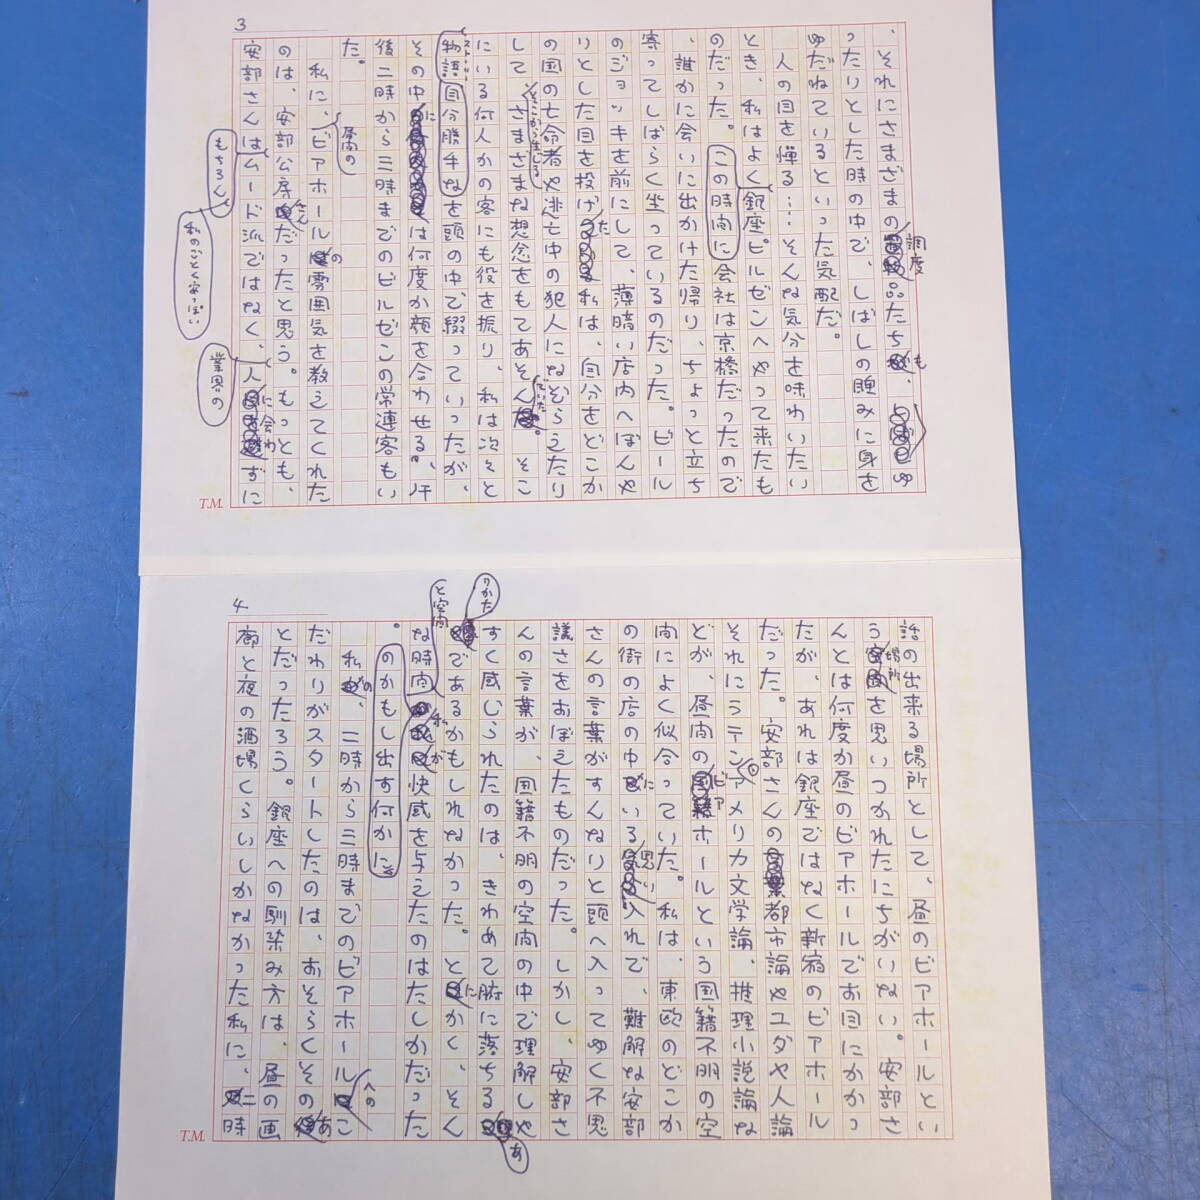 3
、それにさまざまの調度品たちも、ゆ
ったりとした時の中で、しばしの睡みに身を
ゆだねているといった気配だ。
人の目を憚る……そんな気分を味わいたい
とき、私はよく銀座ピルゼンへやって来たも
のだった。この時間に会社は京橋だったので
、誰かに会いに出かけた帰り、ちょっと立ち
寄ってしばらく坐っているのだった。ビール
のジョッキを前にして、薄暗い店内へぼんや
りとした目を投げた私は、自分をどこか
の国の亡命者や逃亡中の犯人になぞらえたり
して、そこから生じるさまざまな想念をもてあそんでいた。そこ
にいる何人かの客にも役を振り、私は次々と
物語ストーリー自分勝手なを頭の中で綴っていったが、
その中には何度か顔を合わせる、午
後二時から三時までのピルゼンの常連客もい
た。
私に、昼間のビアホールの雰囲気を教えてくれた
のは、安部公房さんだったと思う。もっとも、
安部さんはもちろん私のごとく安っぽいムード派ではなく、業界の人に会わずに
T.M.
4
話の出来る場所として、昼のビアホールとい
う場所を思いつかれたにちがいない。安部さ
んとは何度か昼のビアホールでお目にかかっ
たが、あれは銀座ではなく新宿のビアホール
だった。安部さんの都市論やユダヤ人論
それにラテンアメリカ文学論、推理小説論な
どが、昼間のビアホールという国籍不明の空
間によく似合っていた。私は、東欧のどこか
の街の店の中にいる思い入れで、難解な安部
さんの言葉がすんなりと頭へ入ってゆく不思
議さをおぼえたものだった。しかし、安部さ
んの言葉が、国籍不明の空間の中で理解しや
すく感じられたのは、きわめて腑に落ちるあ
りかたであるかもしれなかった。とにかく、そん
な時間と空間のかもし出す何かに私が快感を与えたのはたしかだった
。
私の、二時から三時までのビアホールへのこ
だわりがスタートしたのは、おそらくそのあ
とだったろう。銀座への馴染み方は、昼の画
廊と夜の酒場くらいしかなかった私に、二時
T.M.